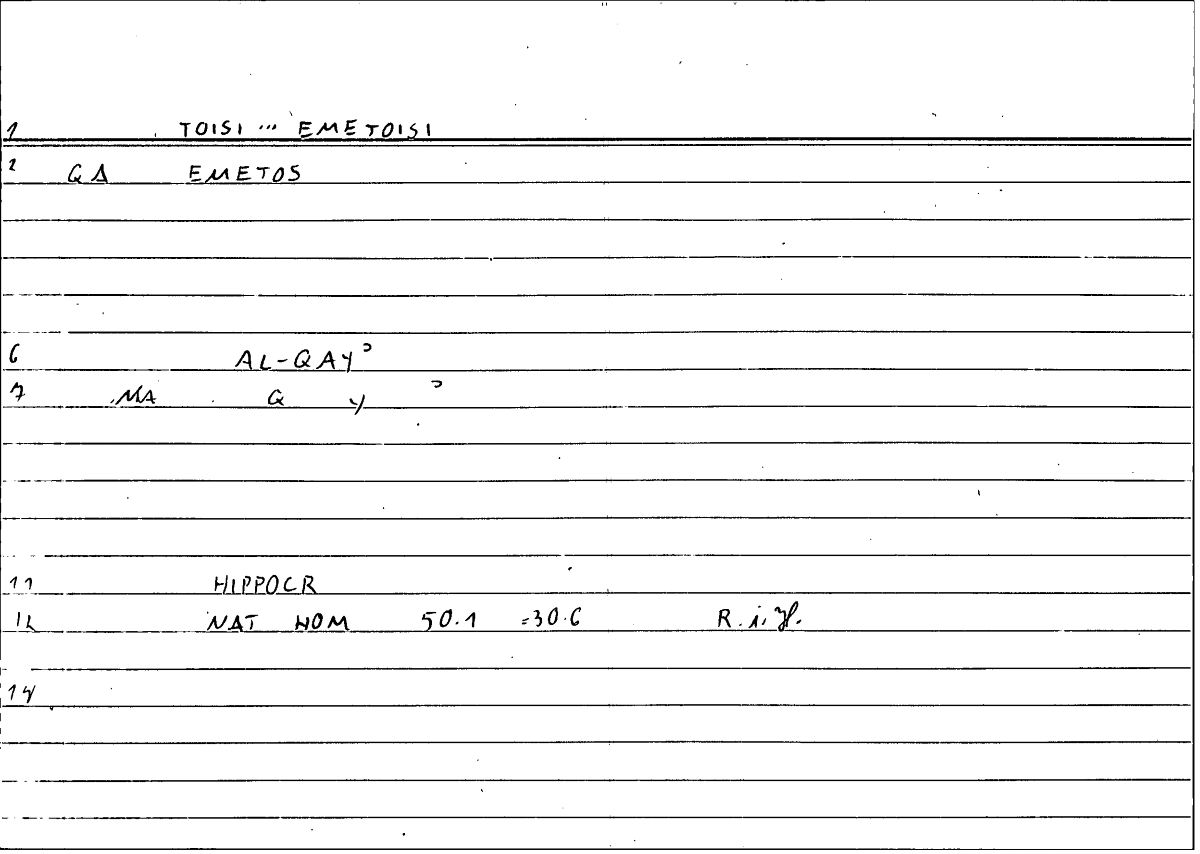 1 TOISI ... EMETOISI
2 GA EMETOS
6 AL-QAYʾ
7 MA Q Y ʾ
11 HIPPOCR
12 NAT HOM 50.1 =30.6 R.i.H.
14